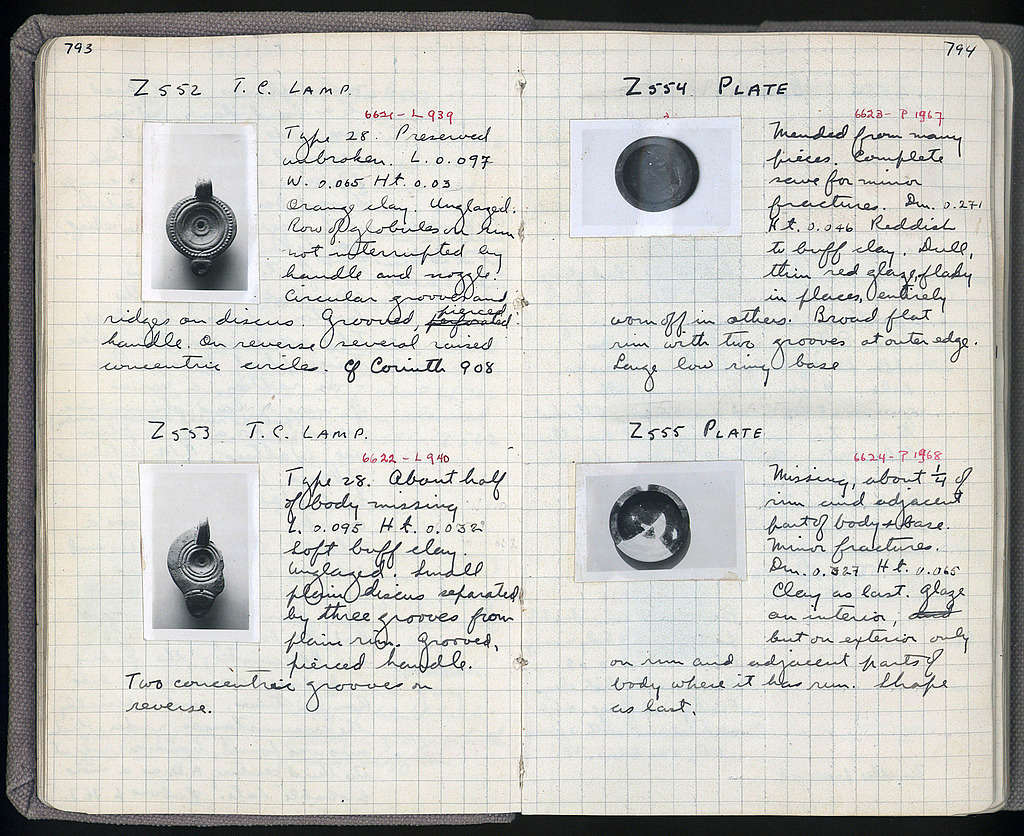 793
Z 552 T. C. LAMP.
6621 - L 939
Type 28. Preserved
unbroken. L. 0.097
W. 0.065 Ht. 0.03
Orange clay. Unglazed.
Row of globules on rim
not interrupted by
handle and nozzle.
Circular grooves and
ridges on discus. Grooved, pierced perforated
handle. On reverse several raised
concentric circles. Cf Corinth 908
Z 553 T.C. LAMP.
6622 - L 940
Type 28. About half
of body missing
L. 0.095 Ht. 0.032
Soft buff clay.
Unglazed. Small
plain discus separated
by three grooves from
plain rim. Grooved,
pierced handle.
Two concentric grooves on
reverse.
794
Z 554 PLATE
6623 - P 1967
Mended from many
pieces. Complete
save for minor
fractures. Dm. 0.271
Ht. 0.046 Reddish
to buff clay. Dull,
thin red glaze, flaky
in places, entirely
worn off in others. Broad flat
rim with two grooves at outer edge.
Large low ring base
Z 555 PLATE
6624 - P 1968
Missing, about 1/4 of
rim and adjacent
part of body & base.
Minor fractures.
Dm. 0.327 Ht. 0.065
Clay as last. Glaze
on interior,
but on exterior only
on rim and adjacent parts of
body where it has run. Shape
as last.